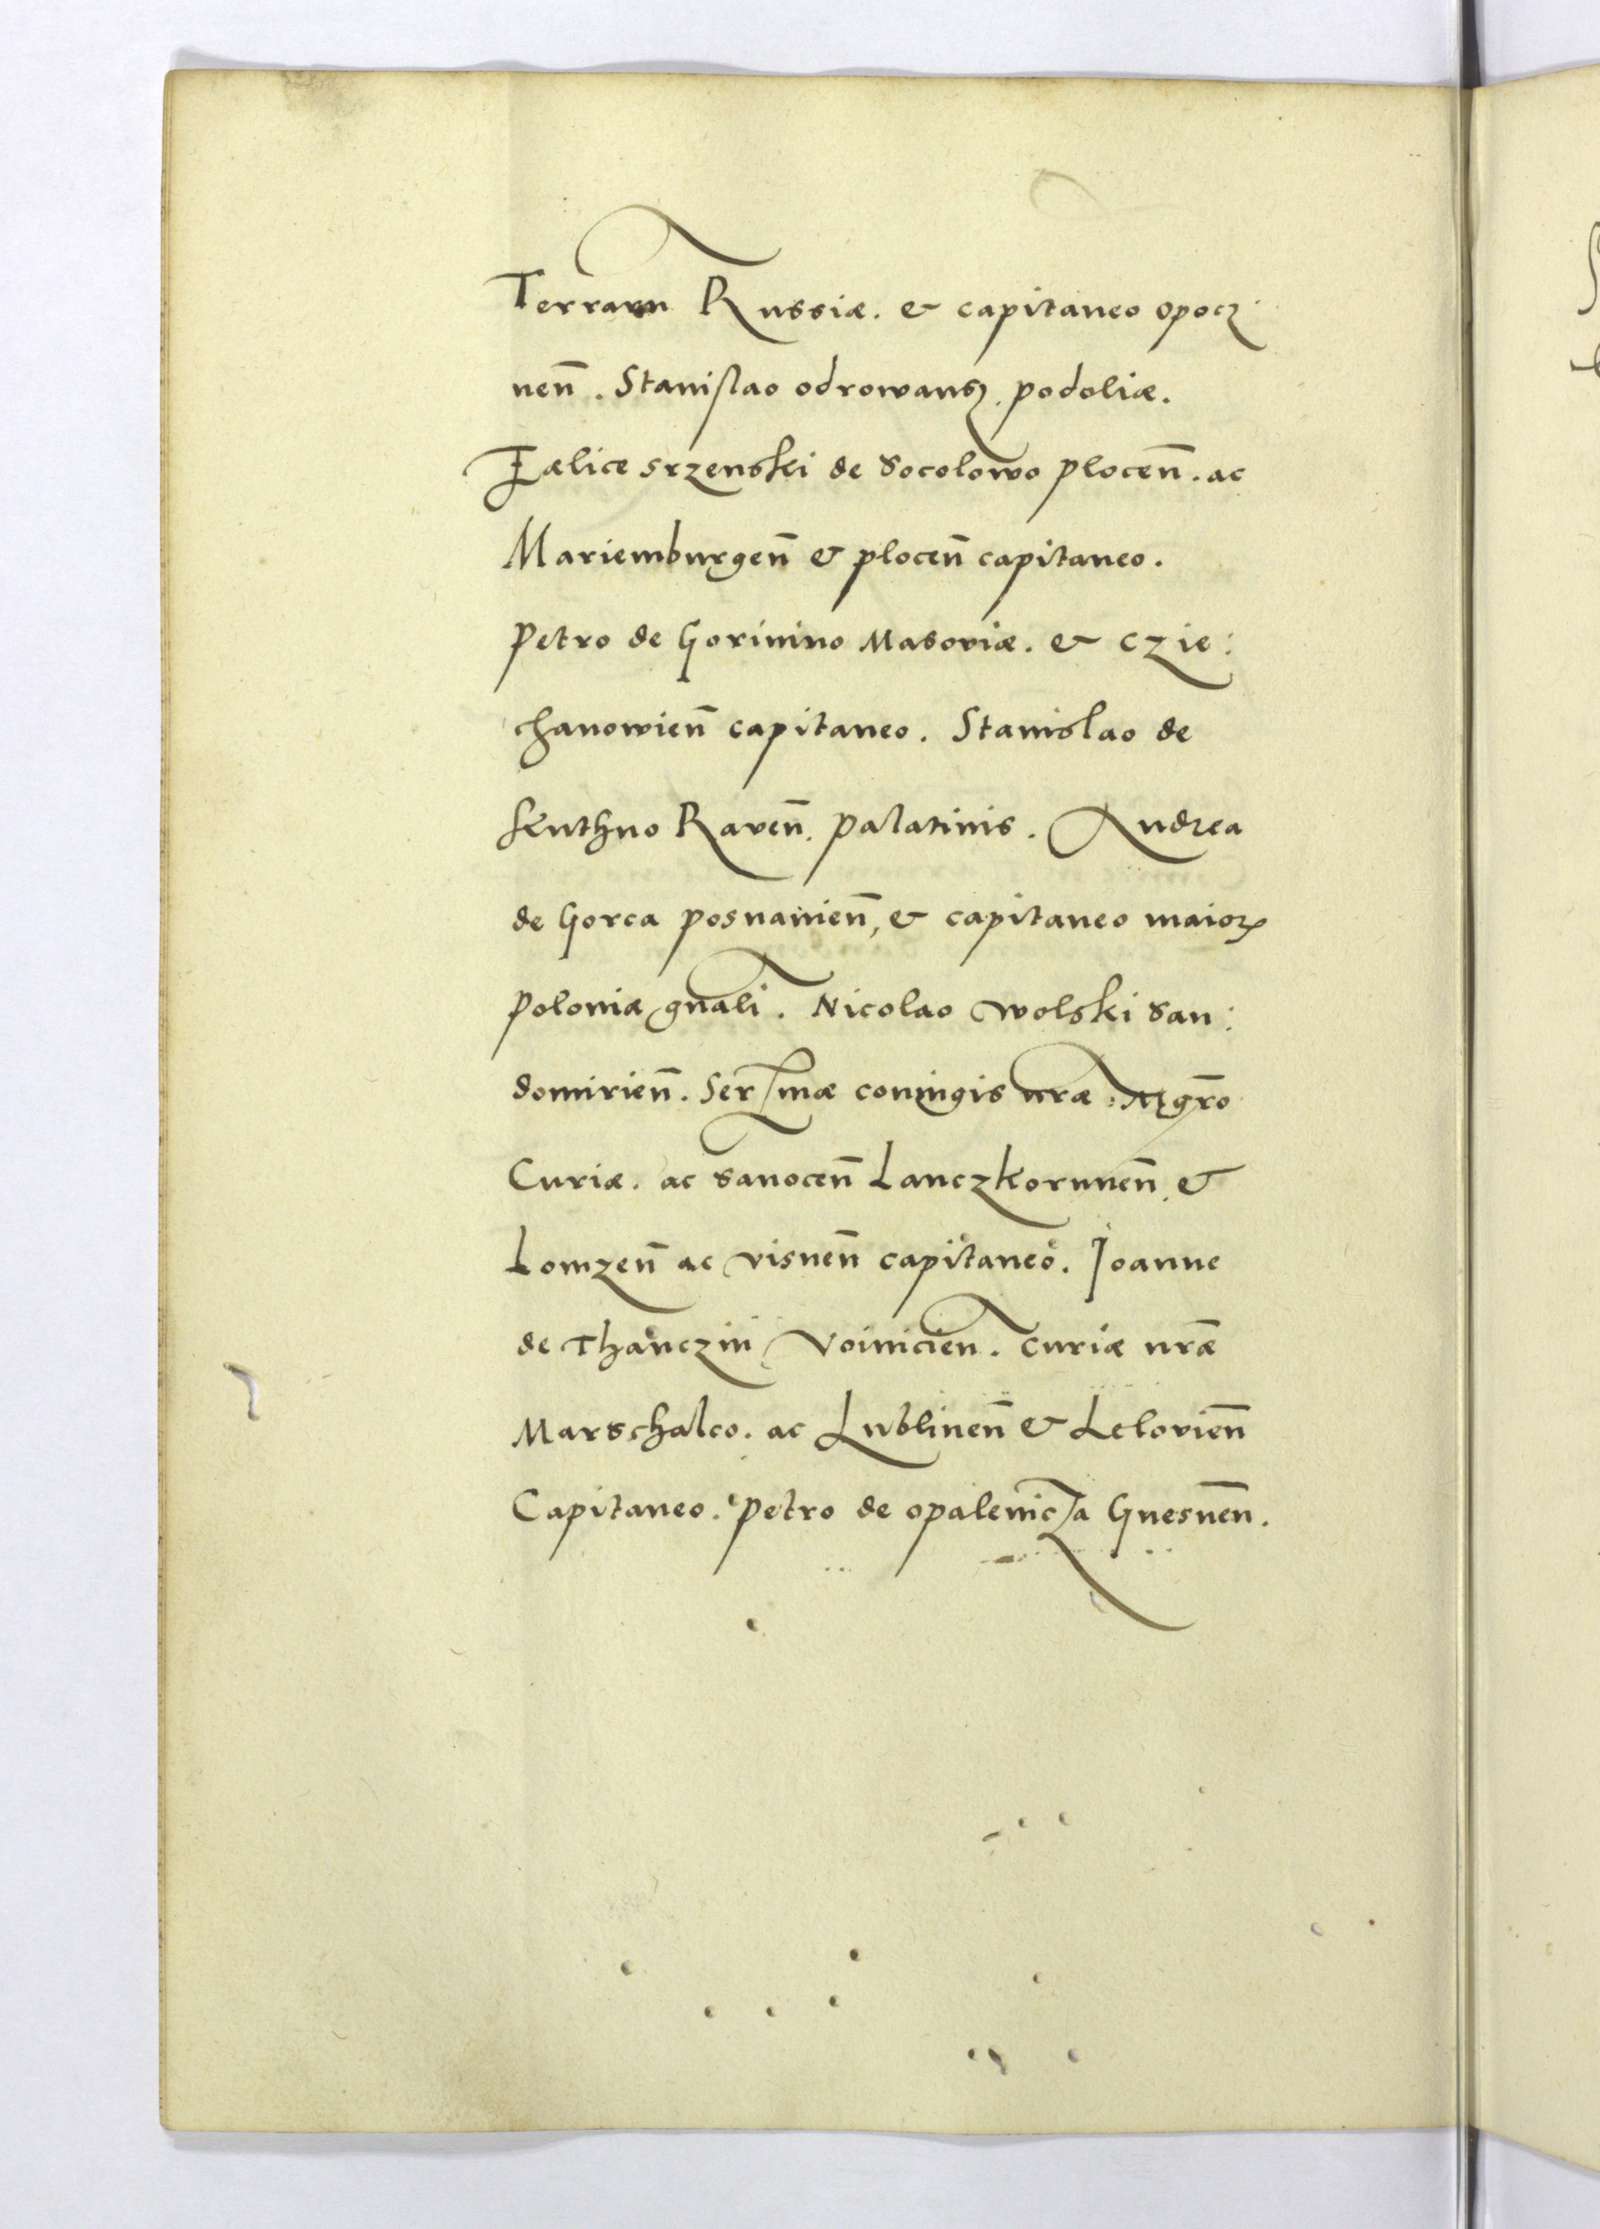 Terrarum Russiæ. & capitaneo opocz
nen̄. Stanislao odrowansz. podoliæ.
Fælice srzenski de Socolowo plocen̄. ac
Mariemburgen̄ & plocen̄ capitaneo.
Petro de Gorinino Masoviæ. & Czie:
chanowien̄ capitaneo. Stanislao de
Kuthno Raven̄. palatinis. Andrea
de Gorca posnanien̄, & capitaneo maioꝝ
poloniæ gn̄ali. Nicolao Wolski San:
domirien̄. Ser[mæ coniugis nr̄æ. Mgr̄o
Curiæ. ac sanocen̄ Lanczkorunen̄. &
Lomzen̄ ac visnen̄ capitaneo. Joanne
de Thanczin Voinicien̄. Curiæ nr̄æ
Marschalco. ac Lublinen̄ & Lelovien̄
Capitaneo. Petro de opalenicza Gnesnen̄.